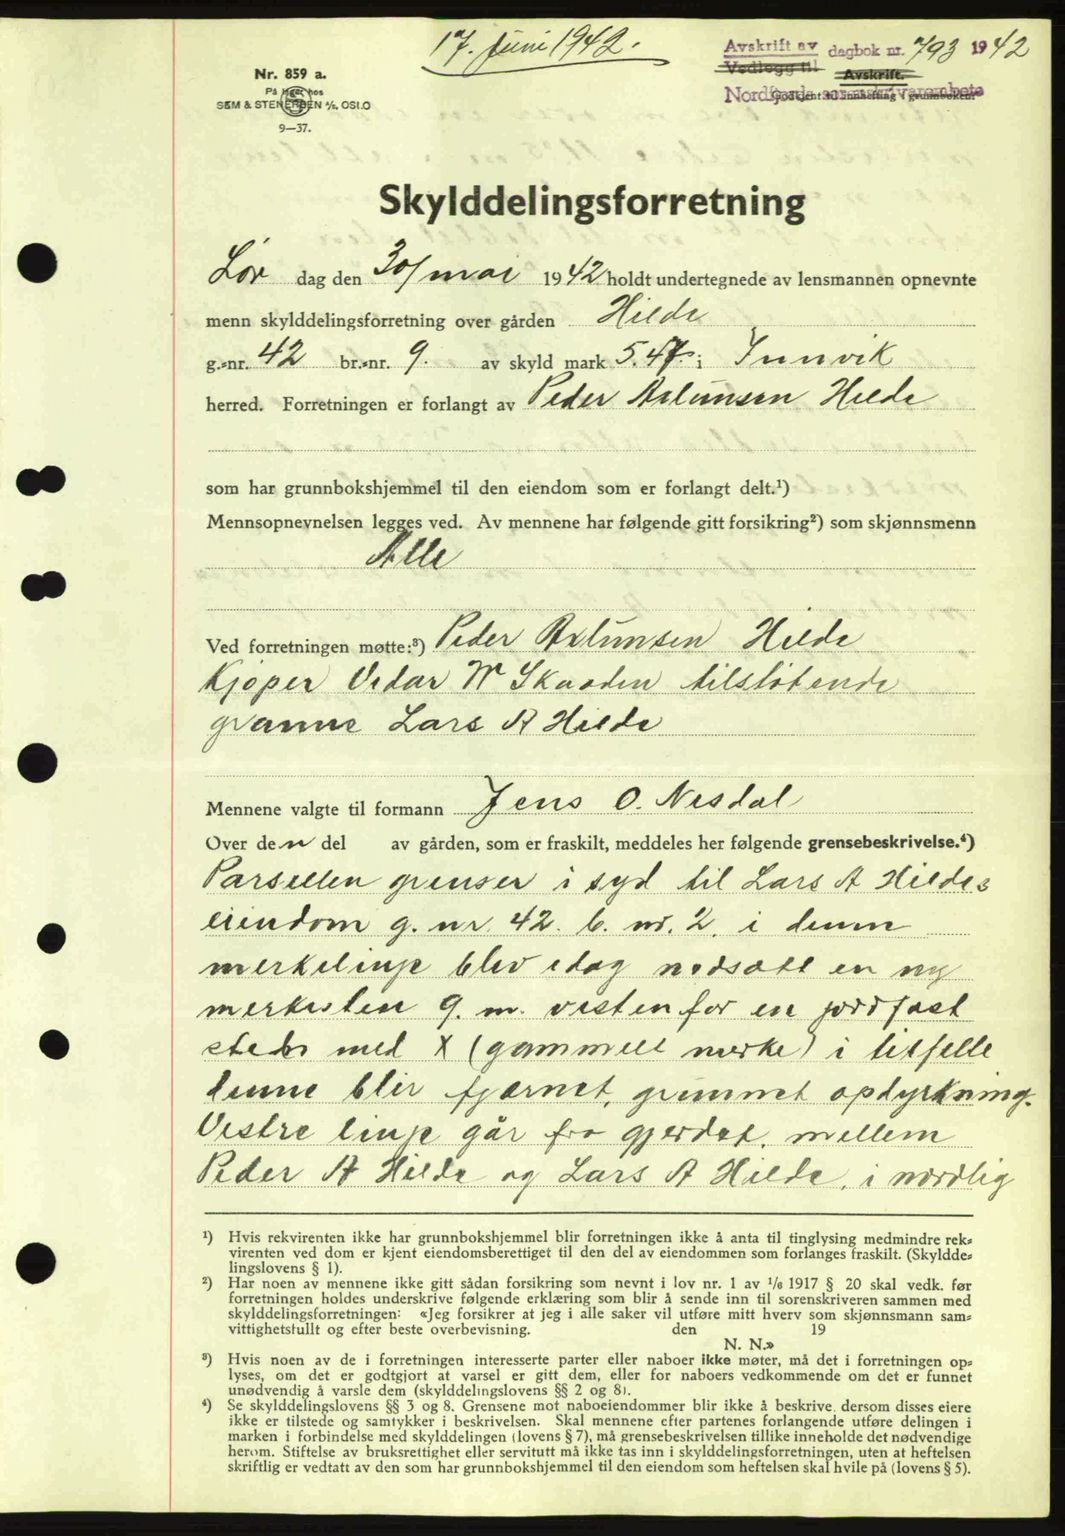 17. juni 1942.
Avskrift av dagbok nr. 793 1942
Vedlegg til
Avskrift.
Nordfjord sorenskriverembete
Godkjent til innhefting i grunnboken.
Nr. 859 a.
På lager hos
SEM & STENERSEN A/S, OSLO
9—37.
Skylddelingsforretning
Lør dag den 30/ mai 1942 holdt undertegnede av lensmannen opnevnte
menn skylddelingsforretning over gården Hilde
g.-nr. 42 br.-nr. 9. av skyld mark 5.47 i Innvik
herred. Forretningen er forlangt av Peder Aslunsen Hilde
som har grunnbokshjemmel til den eiendom som er forlangt delt.¹)
Mennsopnevnelsen legges ved. Av mennene har følgende gitt forsikring²) som skjønnsmenn
Alle
Ved forretningen møtte:³) Peder Aslunsen Hilde
Kjøper Vidar W Skaaden tilstøtende
granne Lars A Hilde
Mennene valgte til formann Jens O. Nesdal
Over den del av gården, som er fraskilt, meddeles her følgende grensebeskrivelse.⁴)
Parsellen grenser i syd til Lars A Hildes
eiendom g. nr. 42. b. nr. 2. i denne
merkelinje blev idag nedsatt en ny
merkesten 9. m. vesten for en jordfast
sten med X (gammelt merke) i tilfelle
denne blir fjærnet, grunnet opdyrkning.
Vestre linje går fra gjerdet, mellem
Peder A Hilde og Lars A Hilde, i nordlig
¹) Hvis rekvirenten ikke har grunnbokshjemmel blir forretningen ikke å anta til tinglysing medmindre rek-
virenten ved dom er kjent eiendomsberettiget til den del av eiendommen som forlanges fraskilt. (Skyldde-
lingslovens § 1).
²) Har noen av mennene ikke gitt sådan forsikring som nevnt i lov nr. 1 av 1/6 1917 § 20 skal vedk. før
forretningen holdes underskrive følgende erklæring som blir å sende inn til sorenskriveren sammen med
skylddelingsforretningen: «Jeg forsikrer at jeg i alle saker vil utføre mitt hverv som skjønnsmann sam-
vittighetsfullt og efter beste overbevisning. den 19
N. N.»
³) Hvis noen av de i forretningen interesserte parter eller naboer ikke møter, må det i forretningen op-
lyses, om det er godtgjort at varsel er gitt dem, eller for naboers vedkommende om det er funnet
unødvendig å varsle dem (skylddelingslovens §§ 2 og 8).
⁴) Se skylddelingslovens §§ 3 og 8. Grensene mot naboeiendommer blir ikke å beskrive dersom disses eiere
ikke er tilstede og samtykker i beskrivelsen. Skal mennene efter partenes forlangende utføre delingen i
marken i forbindelse med skylddelingen (lovens § 7), må grensebeskrivelsen tillike inneholde det nødvendige
herom. Stiftelse av bruksrettighet eller servitutt må ikke tas inn i skylddelingsforretningen, uten at heftelsen
skriftlig er vedtatt av den som har grunnbokshjemmel til den eiendom som heftelsen skal hvile på (lovens § 5).